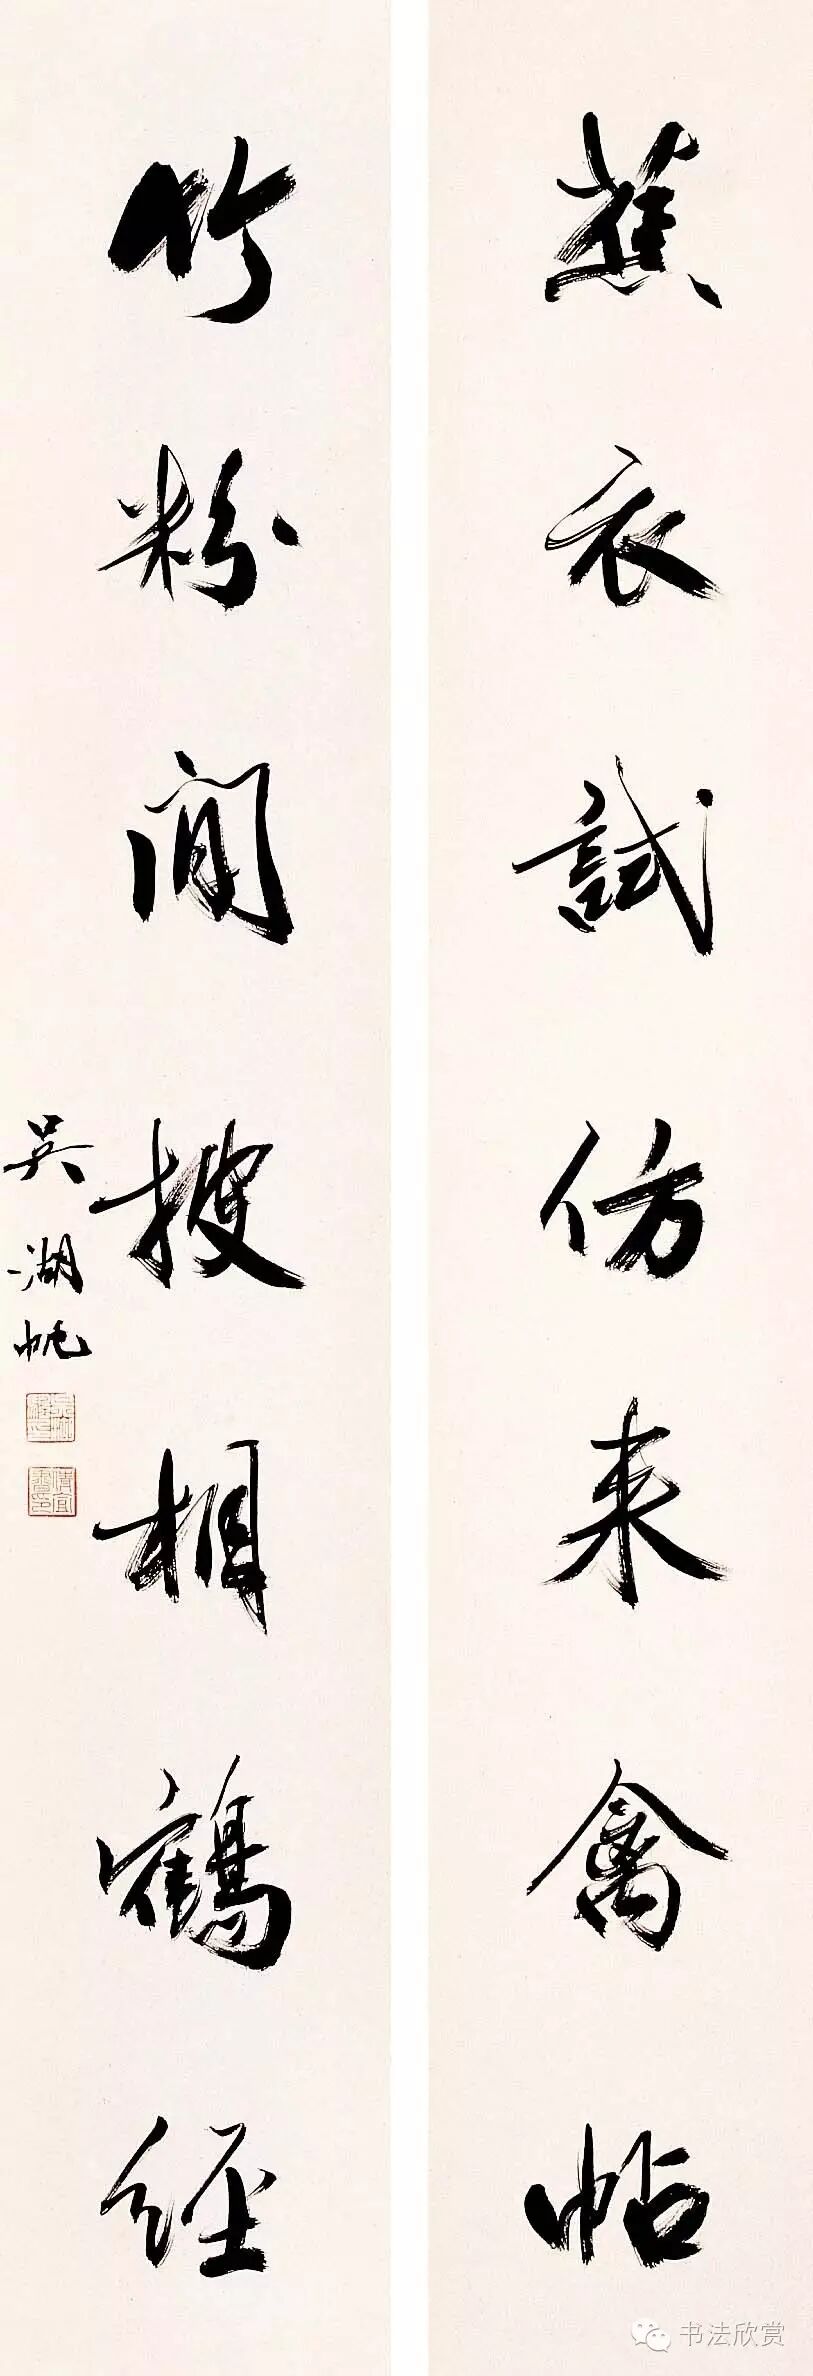 蕉衣試仿来禽帖
竹粉閒搜相鶴經
吳湖帆
書法欣赏